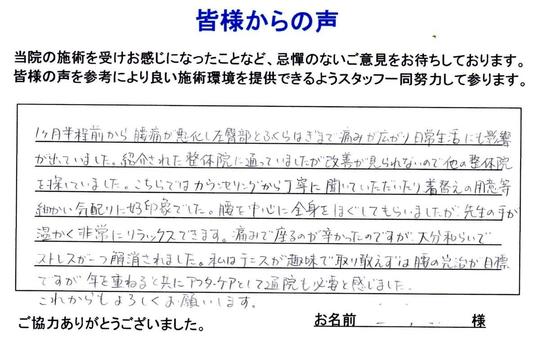 皆様からの声
当院の施術を受けお感じになったことなど、忌憚のないご意見をお待ちしております。
皆様の声を参考により良い施術環境を提供できるようスタッフ一同努力して参ります。
1ヶ月半程前から腰痛が悪化し左臀部とふくらはぎまで痛みが広がり日常生活にも影響
が出ていました。紹介された整体院に通っていましたが改善が見られないので他の整体院
を探していました。こちらではカウンセリングから丁寧に聞いていただいたり着替えの用意等
細かい気配りに好印象でした。腰を中心に全身をほぐしてもらいましたが、先生の手が
温かく非常にリラックスできます。痛みで座るのが辛かったのですが、大分和らいで
ストレスが一つ解消されました。私はテニスが趣味で取り敢えずは腰の完治が目標
ですが年を重ねると共にアフターケアとして通院も必要と感じました。
これからもよろしくお願いします。
ご協力ありがとうございました。 お名前 様